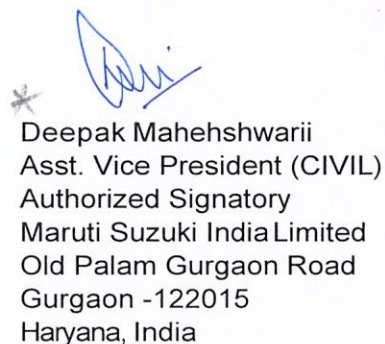 Deepak Mahehshwarii
Asst. Vice President (CIVIL)
Authorized Signatory
Maruti Suzuki India Limited
Old Palam Gurgaon Road
Gurgaon -122015
Haryana, India